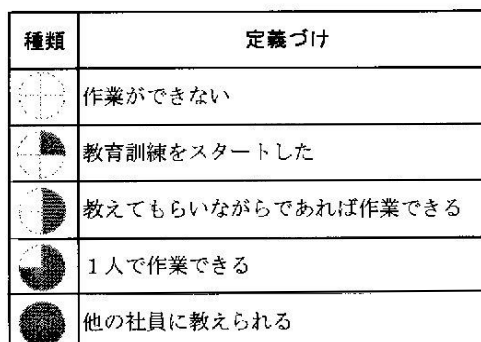 種類 定義づけ
作業ができない
教育訓練をスタートした
教えてもらいながらであれば作業できる
1人で作業できる
他の社員に教えられる